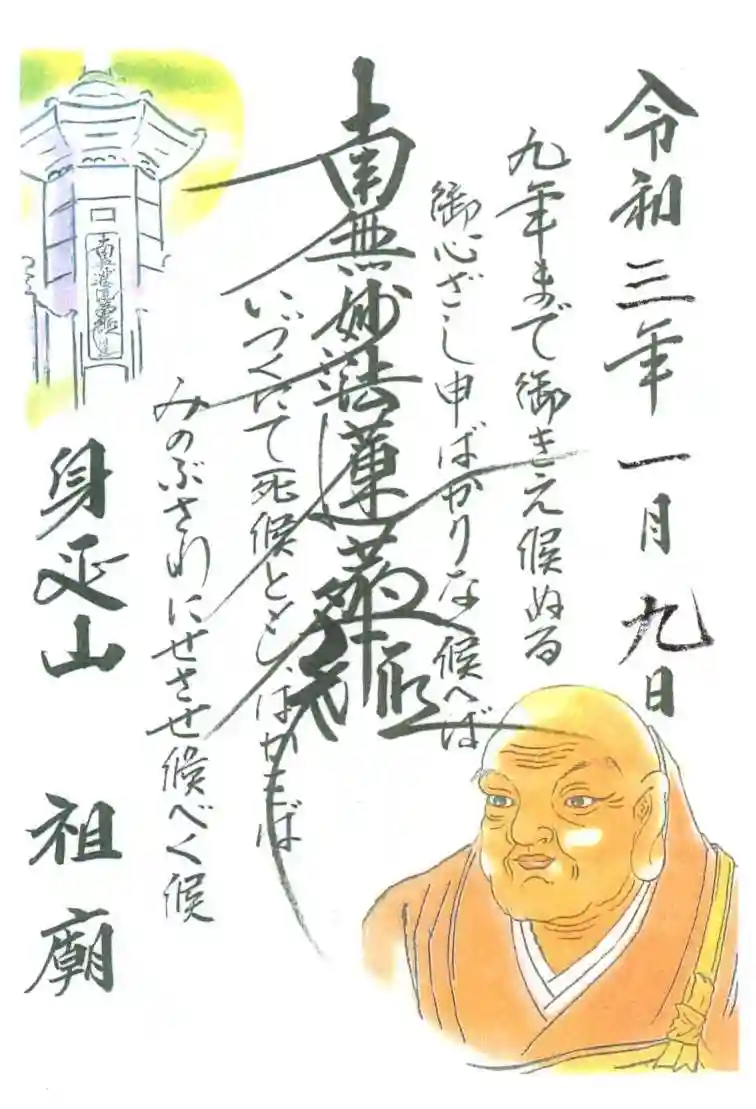 令和三年一月九日
九年まで御きえ候ぬる
御心ざし申ばかりなく候へば
南無妙法蓮華経
いづくにて死候ともはかをば
みのぶさわにせさせ候べく候
身延山 祖廟
南無妙法蓮華経